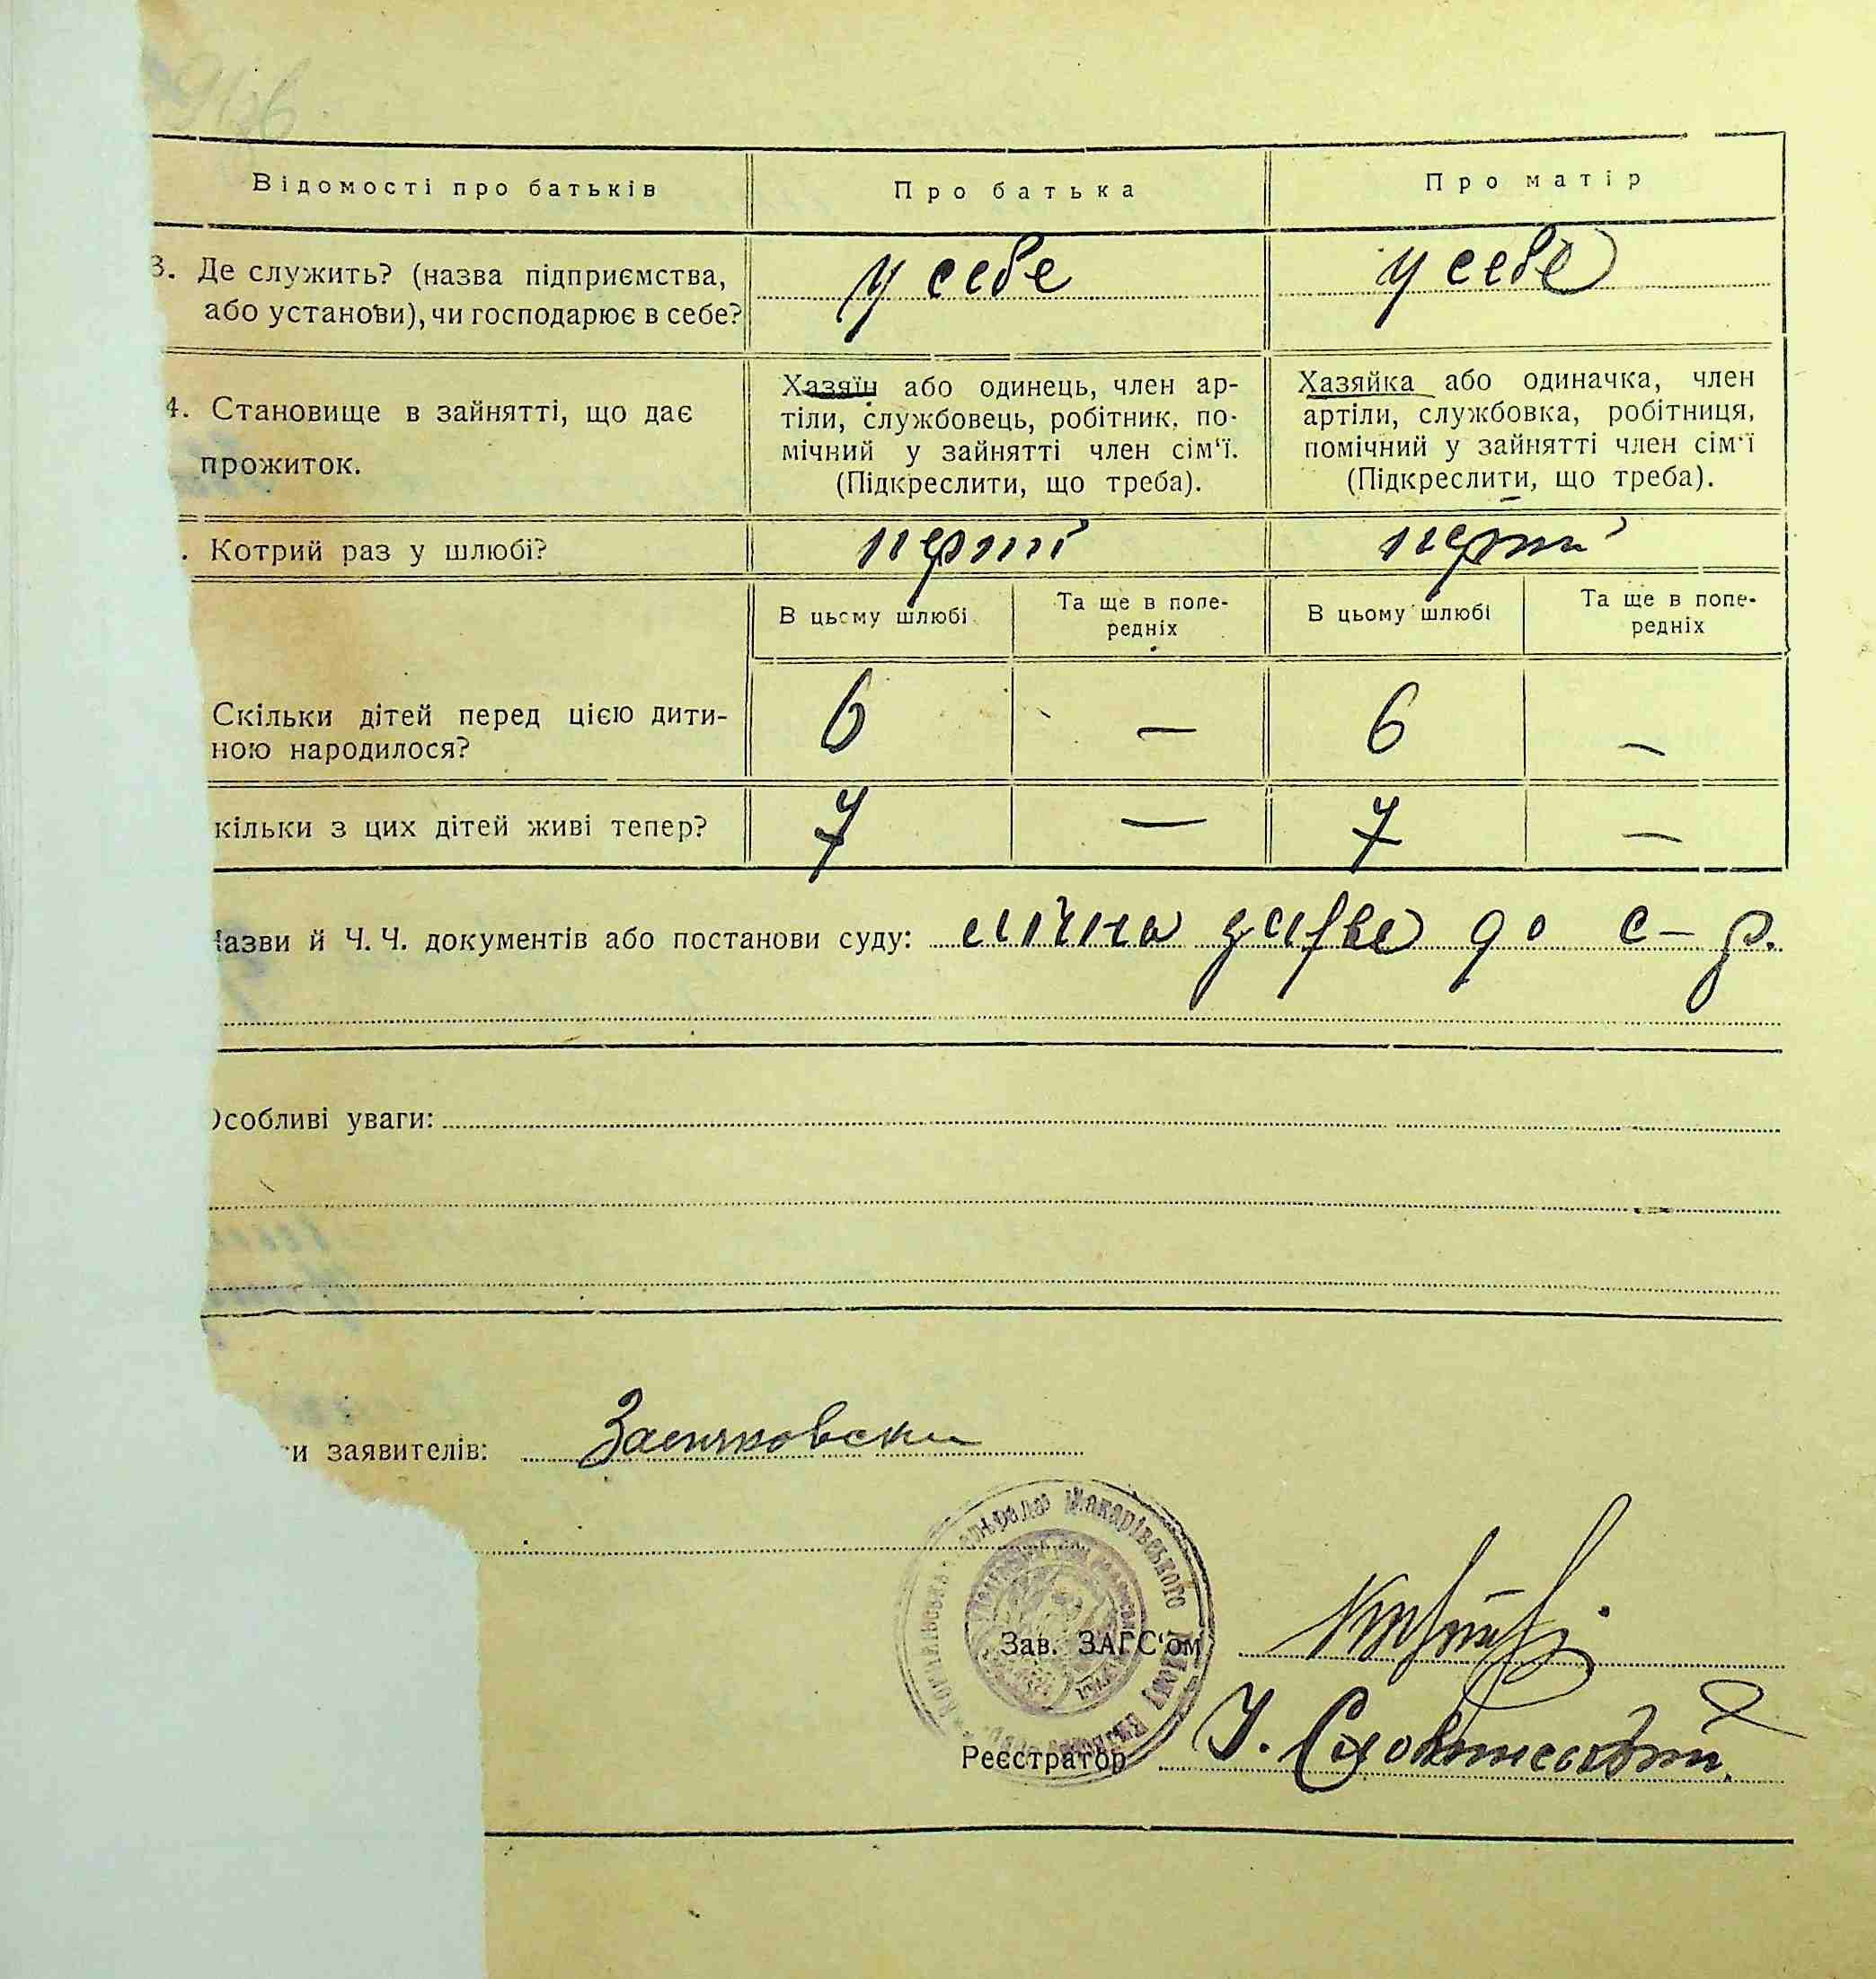 Відомості про батьків
Про батька
Про матір
3. Де служить? (назва підприємства,
або установи), чи господарює в себе?
у себе
у себе
4. Становище в зайнятті, що дає
прожиток.
Хазяїн або одинець, член ар-
тіли, службовець, робітник, по-
мічний у зайнятті член сім‘ї.
(Підкреслити, що треба).
Хазяйка або одиначка, член
артіли, службовка, робітниця,
помічний у зайнятті член сім‘ї
(Підкреслити, що треба).
. Котрий раз у шлюбі?
перший
перший
В цьому шлюбі
Та ще в попе-
редніх
В цьому шлюбі
Та ще в попе-
редніх
Скільки дітей перед цією дити-
ною народилося?
6 — 6 —
кільки з цих дітей живі тепер?
7 — 7 —
Назви й Ч. Ч. документів або постанови суду: до с-р.
Особливі уваги:
и заявителів:
Макарівського
Зав. ЗАГС‘ом
Реєстратор